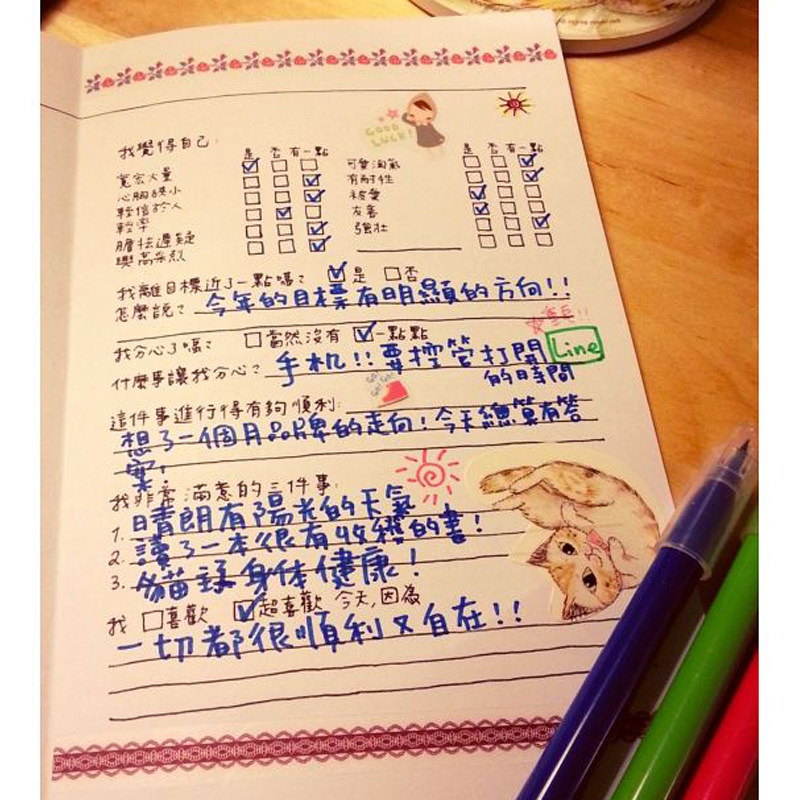 GOOD LUCK!
我覺得自己：
是 否 有一點
是 否 有一點
寬宏大量
可愛淘氣
心胸狹小
有耐性
輕信於人
被愛
輕率
友善
膽怯遲疑
強壯
興高采烈
我離目標近了一點嗎？ 是 否
怎麼說？ 今年的目標有明顯的方向!!
我分心了嗎？ 當然沒有 一點點
什麼事讓我分心？ 手机!! 要控管打開Line
的時間
這件事進行得有夠順利：
想了一個月品牌的走向！今天總算有答
案！
我非常滿意的三件事：
1. 晴朗有陽光的天氣
2. 讀了一本很有收穫的書！
3. 身体健康！
我 喜歡 超喜歡 今天，因為
一切都很順利又自在!!